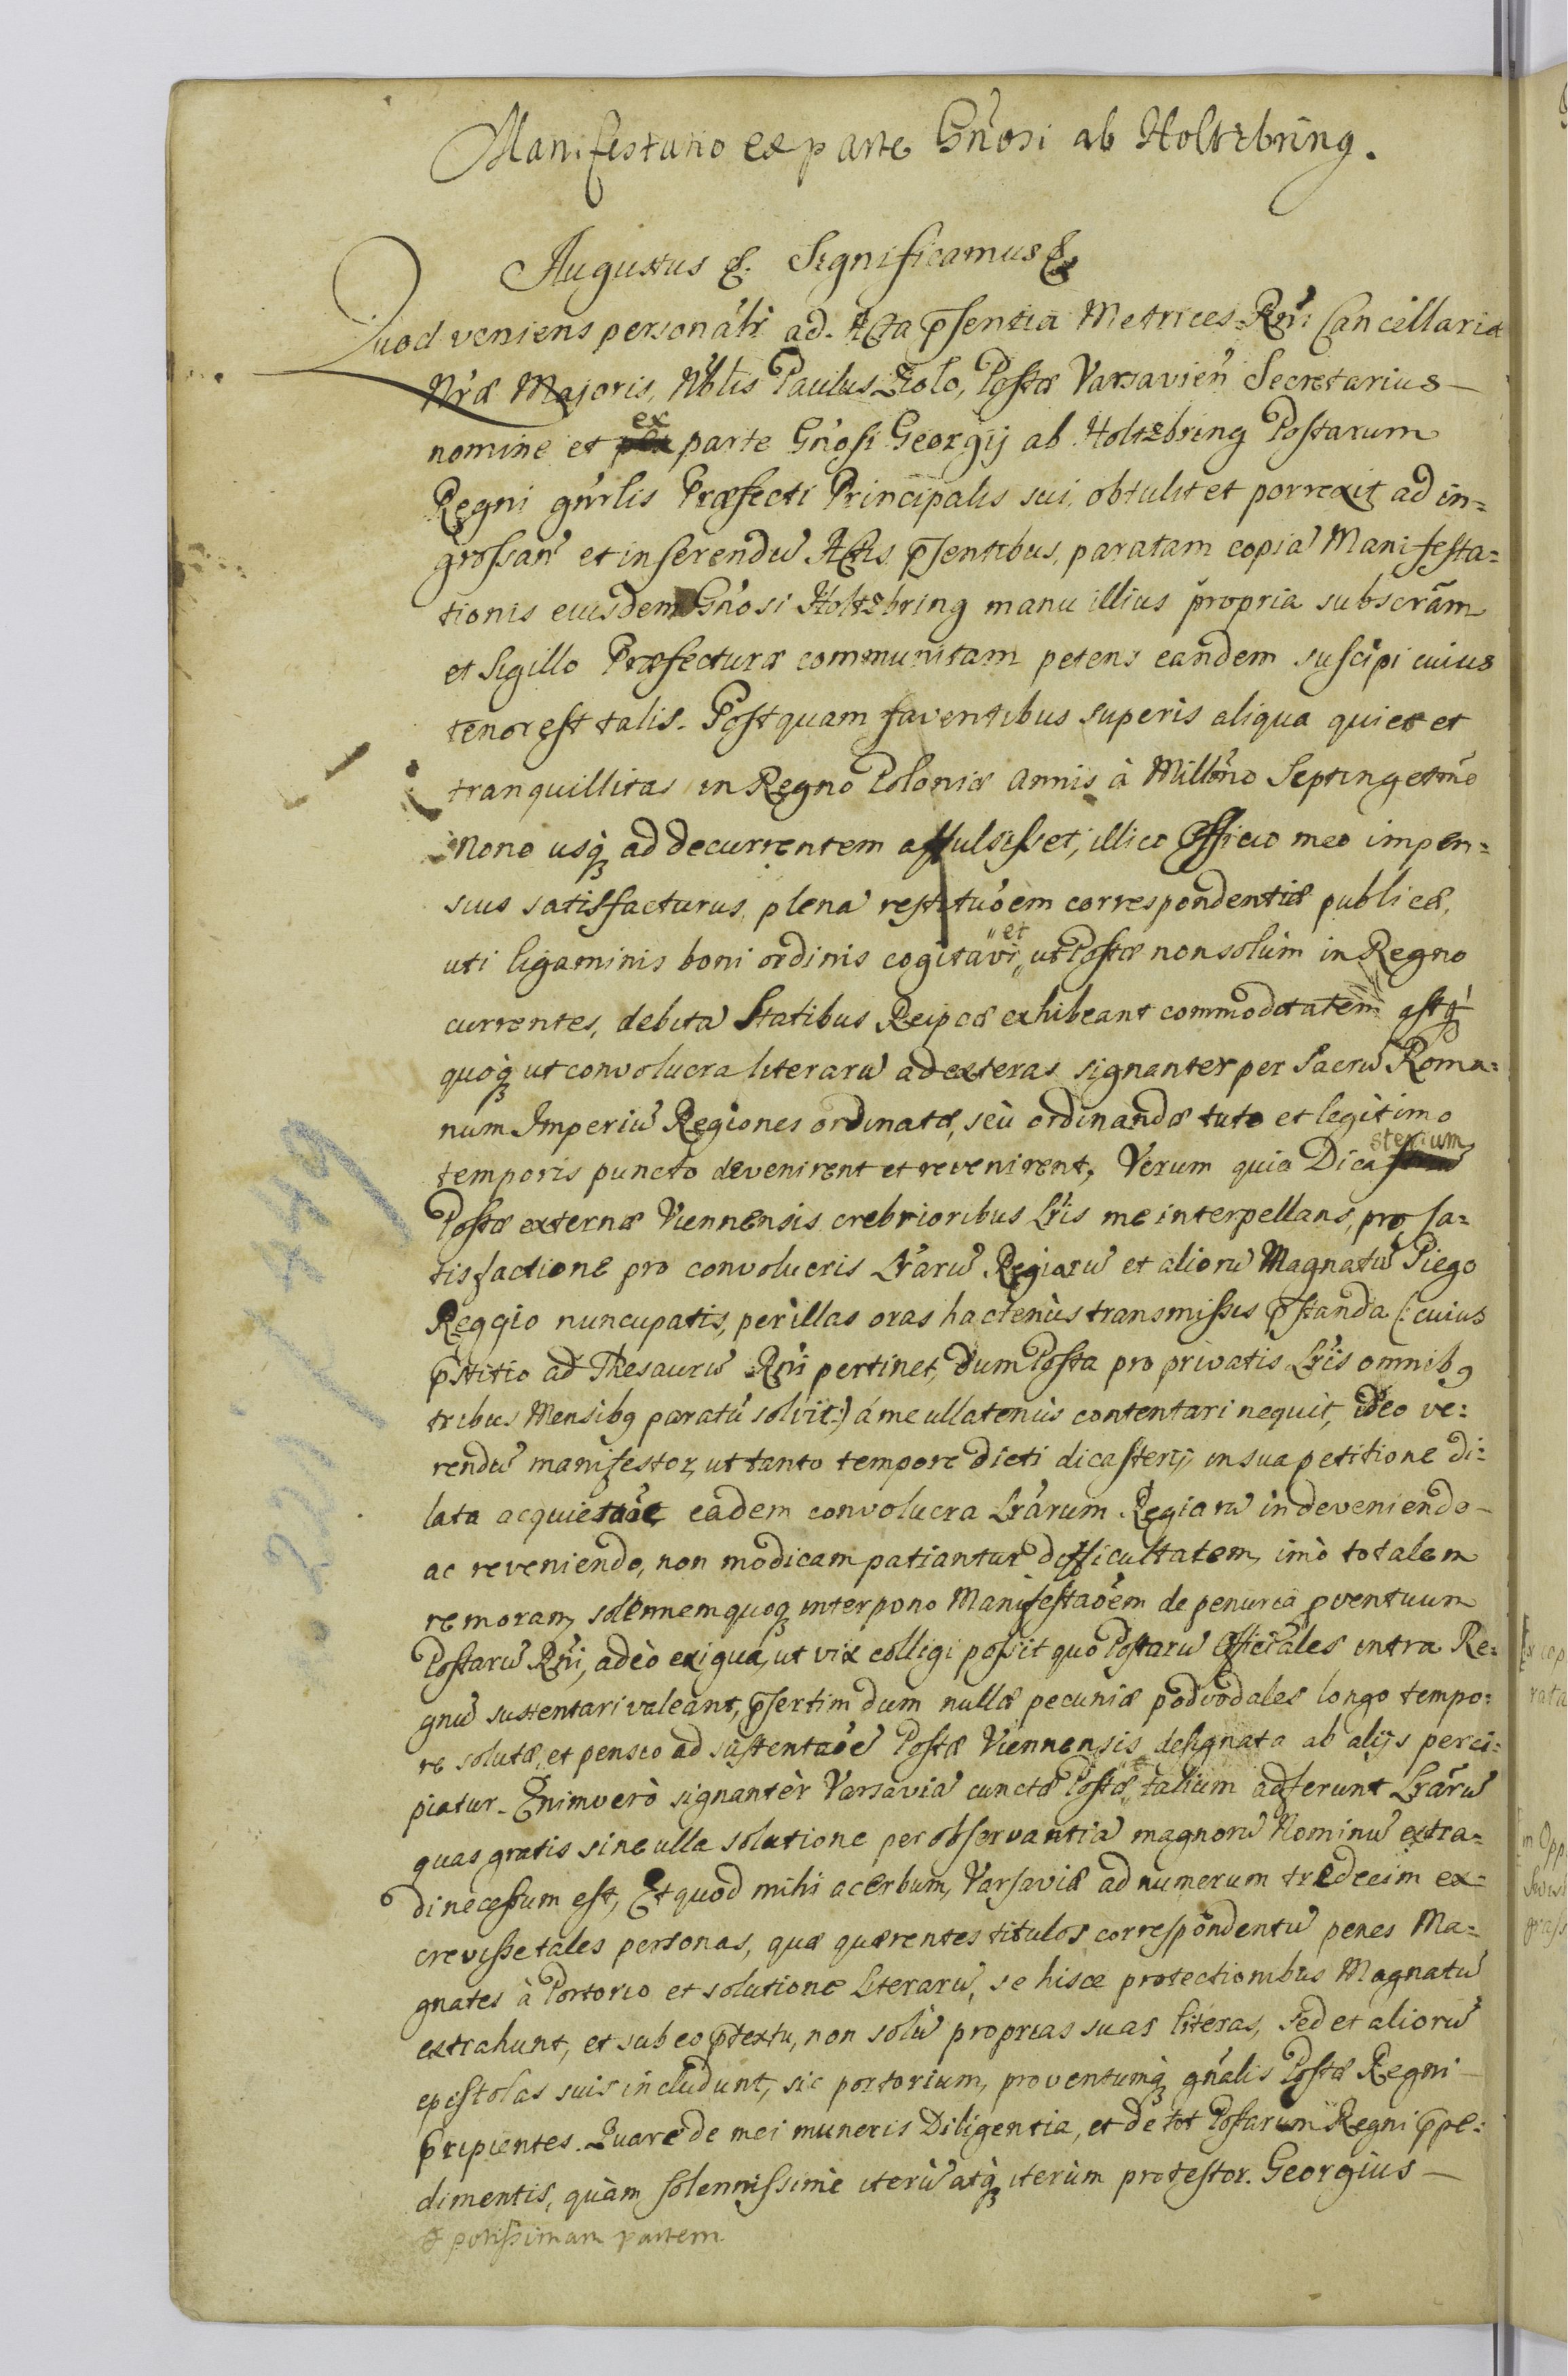 Manifestatio ex parte Gn̄osi ab Holtzbring.
Augustus &. Significamus &
Quod veniens personal'r ad Acta p̄sentia Metrices Rn̄i Cancellariæ
Nr̄æ Majoris, Nb̄lis Paulus Zolo, Postæ Varsavien̄ Secretarius
nomine et ex parte Gn̄osi Georgij ab Holtzbring Postarum
Regni gn̄rlis Præfecti Principalis sui, obtulit et porrexit ad in=
grossan̄ et inserendū Actis p̄sentibus, paratam copiā Manifesta=
tionis eiusdem Gn̄osi Holtzbring manu illius propria subscr̄am
et Sigillo Præfecturæ communitam petens eandem suscipi cuius
tenor est talis. Postquam faventibus superis aliqua quies et
tranquillitas in Regno Poloniæ annis à Millm̄o Septingetm̄o
Nono usq̨ ad decurrentem affulsisset, illico Officio meo impen=
sius satisfacturus, plenā restituōem correspondentiæ publicæ,
uti ligaminis boni ordinis cogitavi et ut Postæ non solùm in Regno
currentes, debitā Statibus Reipcæ exhibeant commoditatem, ast q̨
quoq̨ ut convolucra literarū ad exteras signanter per Sacrū Roma=
num Imperiū Regiones ordinatæ, seù ordinandæ tuto et legitimo
temporis puncto devenirent et revenirent, Verum quia Dicasterium
Postæ externæ Viennensis crebrioribus Lr̄is me interpellans, pro sa=
tisfactione pro convolucris Lr̄arū Regiarū et aliorū Magnatū Piego
Reggio nuncupatis, per illas oras hactenùs transmissis p̄standa (: cuius
p̄stitio ad Thesaurū Rn̄i pertinet, dum Posta pro privatis Lr̄is omnibq
tribus Mensibq paratū solvit :) á me ullatenùs contentari nequit, ideo ve=
rendū manifestor, ut tanto tempore dicti dicasterij in sua petitione di=
lata acquietaōe, eadem convolucra Lr̄arum Regiarū in deveniendo
ac reveniendo, non modicam patiantur difficultatem, imò totalem
remoram, solennem quoq̨ interpono Manifestaōem de penuria pventuum
Postarū Rn̄i, adeò exigua, ut vix colligi possit quo Postarū Officiales intra Re=
gnū sustentari valeant, p̄sertim dum nullæ pecuniæ podvodales longo tempo=
re solutæ, et pensio ad sustentaōē Postæ Viennensis designata ab alijs perci=
piatur. Enimverò signantèr Varsaviā cunctæ Postæ talium adferunt Lr̄arū
quas gratis sine ulla solutione per observantiā magnorū Nominū extra=
di necessum est, Et quod mihi acerbum, Varsaviæ ad numerum tredecim ex=
crevisse tales personas, quæ quærentes titulos correspondentū penes Ma=
gnates à Portorio et solutione Literarū, se hisce protectionibus Magnatū
extrahunt, et sub eo p̄textu, non solū proprias suas literas, sed et aliorū
epistolas suis includunt, sic portorium, proventumq̨ gn̄alis Postæ Regni
p̄ripientes. Quare de mei muneris Diligentia, et de tot Postarum Regni p̄pe=
dimentis, quàm solennissimè iterū atq̨ iterùm protestor. Georgius
& potissimam partem